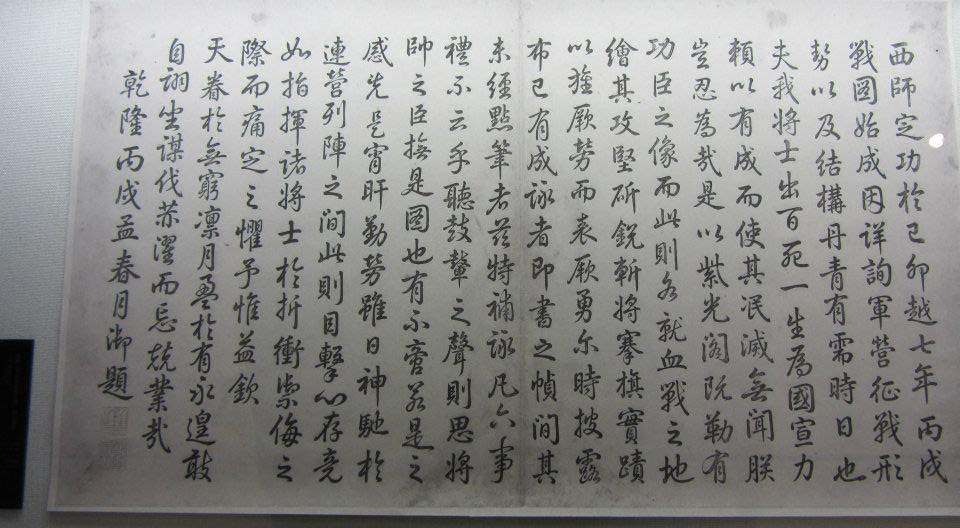 西師定功於己卯越七年丙戌
戰圖始成因詳詢軍營征戰形
勢以及結構丹青有需時日也
夫我將士出百死一生為國宣力
賴以有成而使其泯滅無聞朕
豈忍為哉是以紫光閣既勒有
功臣之像而此則各就血戰之地
繪其攻堅斫銳斬將搴旗實蹟
以旌厥勞而表厥勇尔時披露
布已有成詠者即書之幀間其
未經點筆者茲特補詠凡六事
禮不云乎聽鼓鼙之聲則思將
帥之臣撫是圖也有不啻若是之
感先是宵旰勤勞雖日神馳於
連營列陣之間此則目擊心存竟
如指揮諸將士於折衝禦侮之
際而痛定之懼予惟益欽
天眷於無窮凜月盈於有永遑敢
自詡坐謀伐恭濯而忘兢業哉
乾隆丙戌孟春月御題